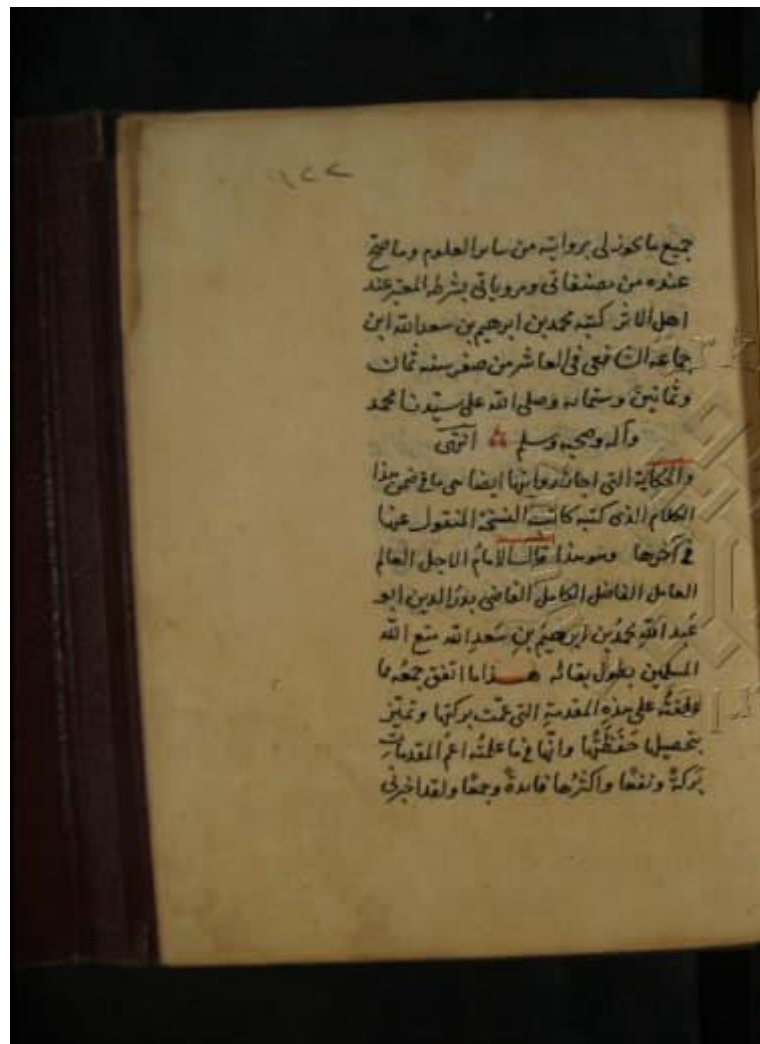 ١٢٢
جميع ما يجوز لي بروايته من ساير العلوم وما صح
عنده من مصنفاتي ومروياتي بشرطه المعتبر عند
اهل الاثر كتبه محمد بن ابرهيم بن سعد الله ابن
جماعه الشافعي في العاشر من صفر سنه ثمان
وثمانين وستمايه وصلى الله على سيّدنا محمد
وآله وصحبه وسلم انتهى
والحكاية التي اجاز روايتها ايضا هي ما في ضمن هذا
الكلام الذي كتبه كاتب النسخة المنقول عنها
في آخرها وهو هذا قال الامامُ الاجل العالم
العامل الفاضل الكامل القاضي بدرُ الدين ابو
عَبد اللّهِ محمدُ بن ابرهيمُ بنِ سَعدِ الله متع الله
المسلمين بطول بقائه هـــذا ما اتفق جمعُه مما
علّقتُه على هذه المقدمةِ التي عمّت بركتها وتميّز
بتحصيلها حَفَظَتُها وانّها في ما علمتُه اعمّ المقدماتِ
بَركةً ونفعًا واكثرُها فايدةً وجمعًا ولقد اخبرني